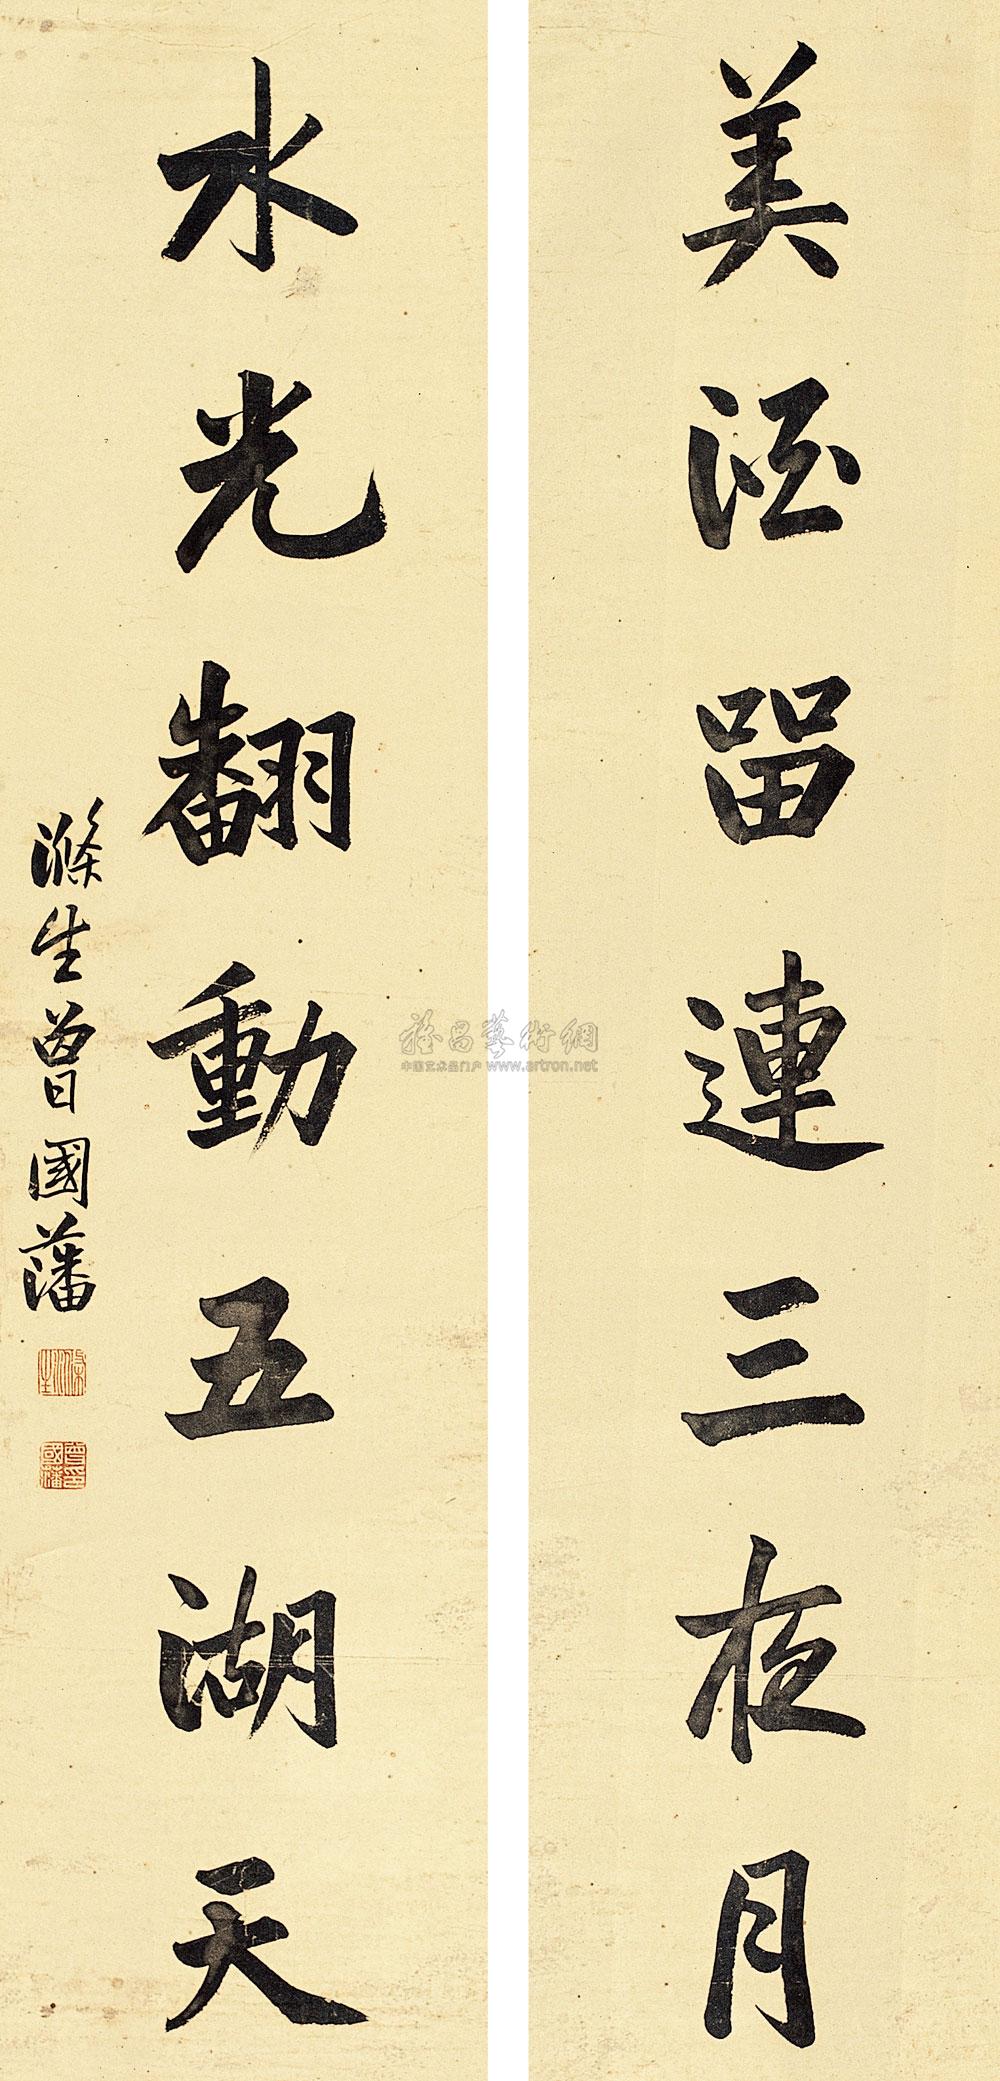 美酒留連三夜月
水光翻動五湖天
滌生曾國藩
滌生
曾國藩印
雅昌藝術網
中国艺术品门户 www.artron.net